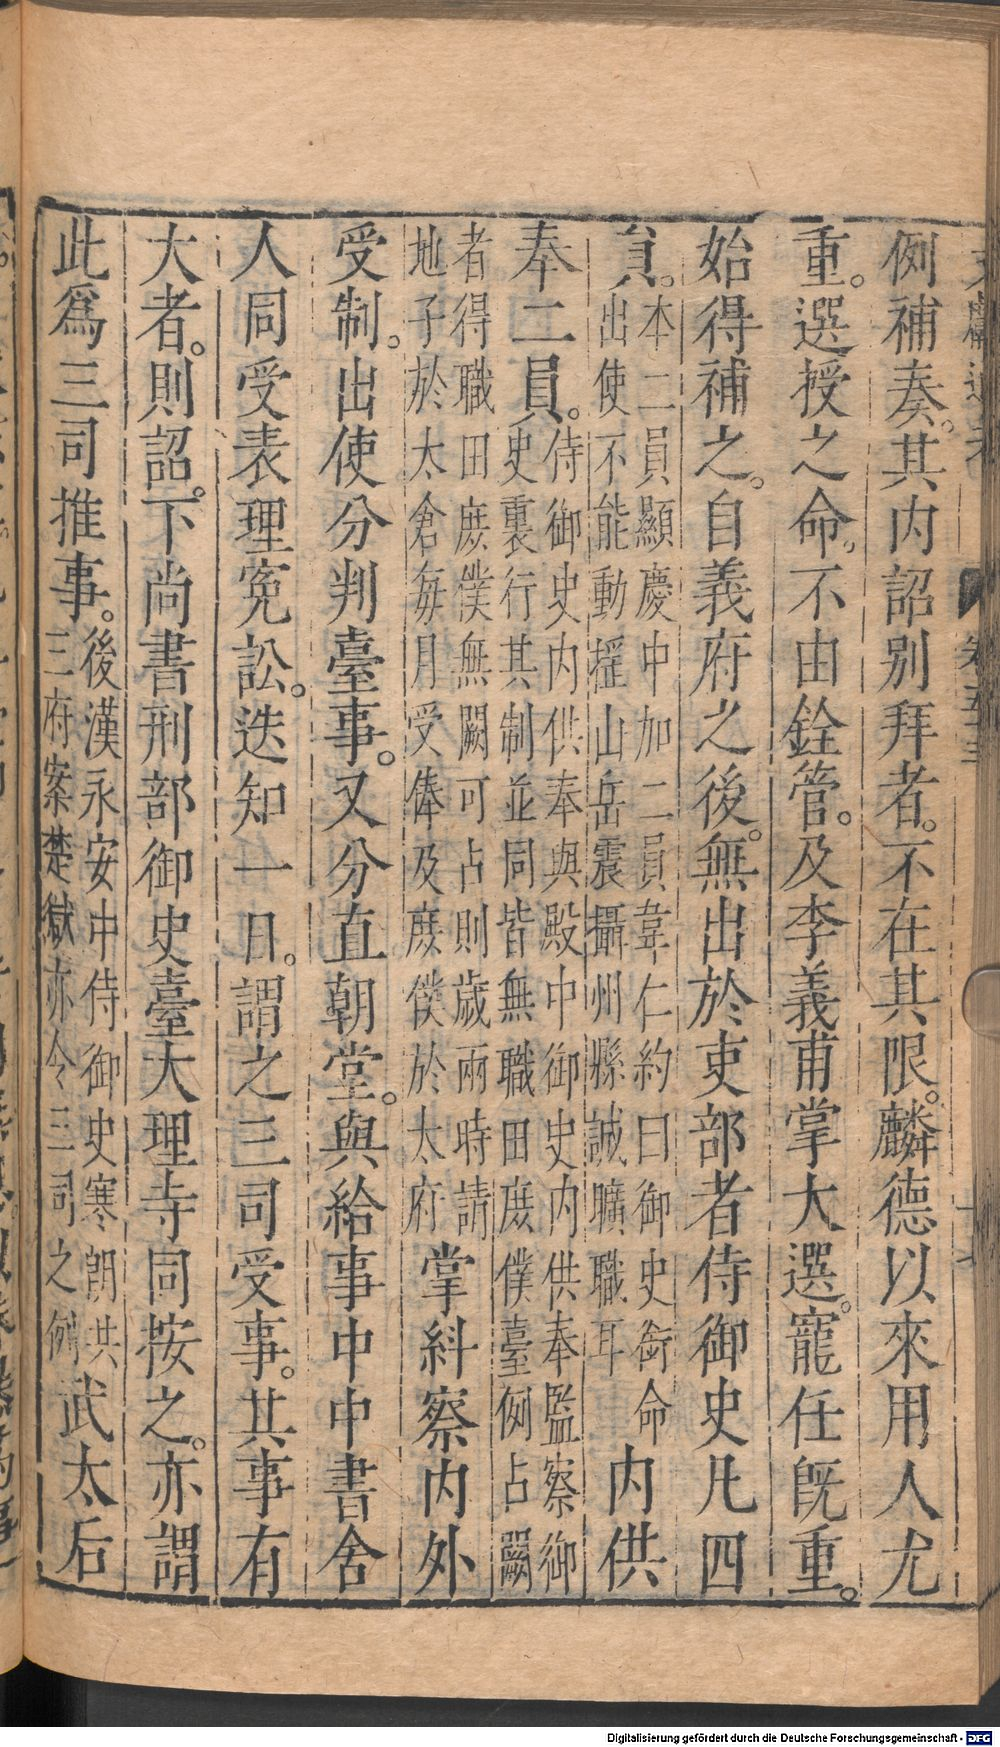 例補奏。其内詔别拜者。不在其限。麟德以來用人尤
重。選授之命。不由銓管。及李義甫掌大選。寵任旣重。
始得補之。自義府之後。無出於吏部者侍御史凡四
員。本二員顯慶中加二員韋仁約曰御史銜命
出使不能動揺山岳震攝州縣誠曠職耳
内供
奉二員。侍御史内供奉與殿中御史内供奉監察御
史裏行其制並同皆無職田庻僕臺例占闕
者得職田庻僕無闕可占則歲兩時請
地子於太倉每月受俸及庻僕於太府
掌糾察内外
受制。出使分判臺事。又分直朝堂。與給事中中書舍
人同受表理寃訟。迭知一日。謂之三司受事。其事有
大者。則詔。下尚書刑部御史臺大理寺同按之。亦謂
此爲三司推事。後漢永安中侍御史寒朗共
三府案楚獄亦令三司之例
武太后
卷五十三
Digitalisierung gefördert durch die Deutsche Forschungsgemeinschaft - DFG